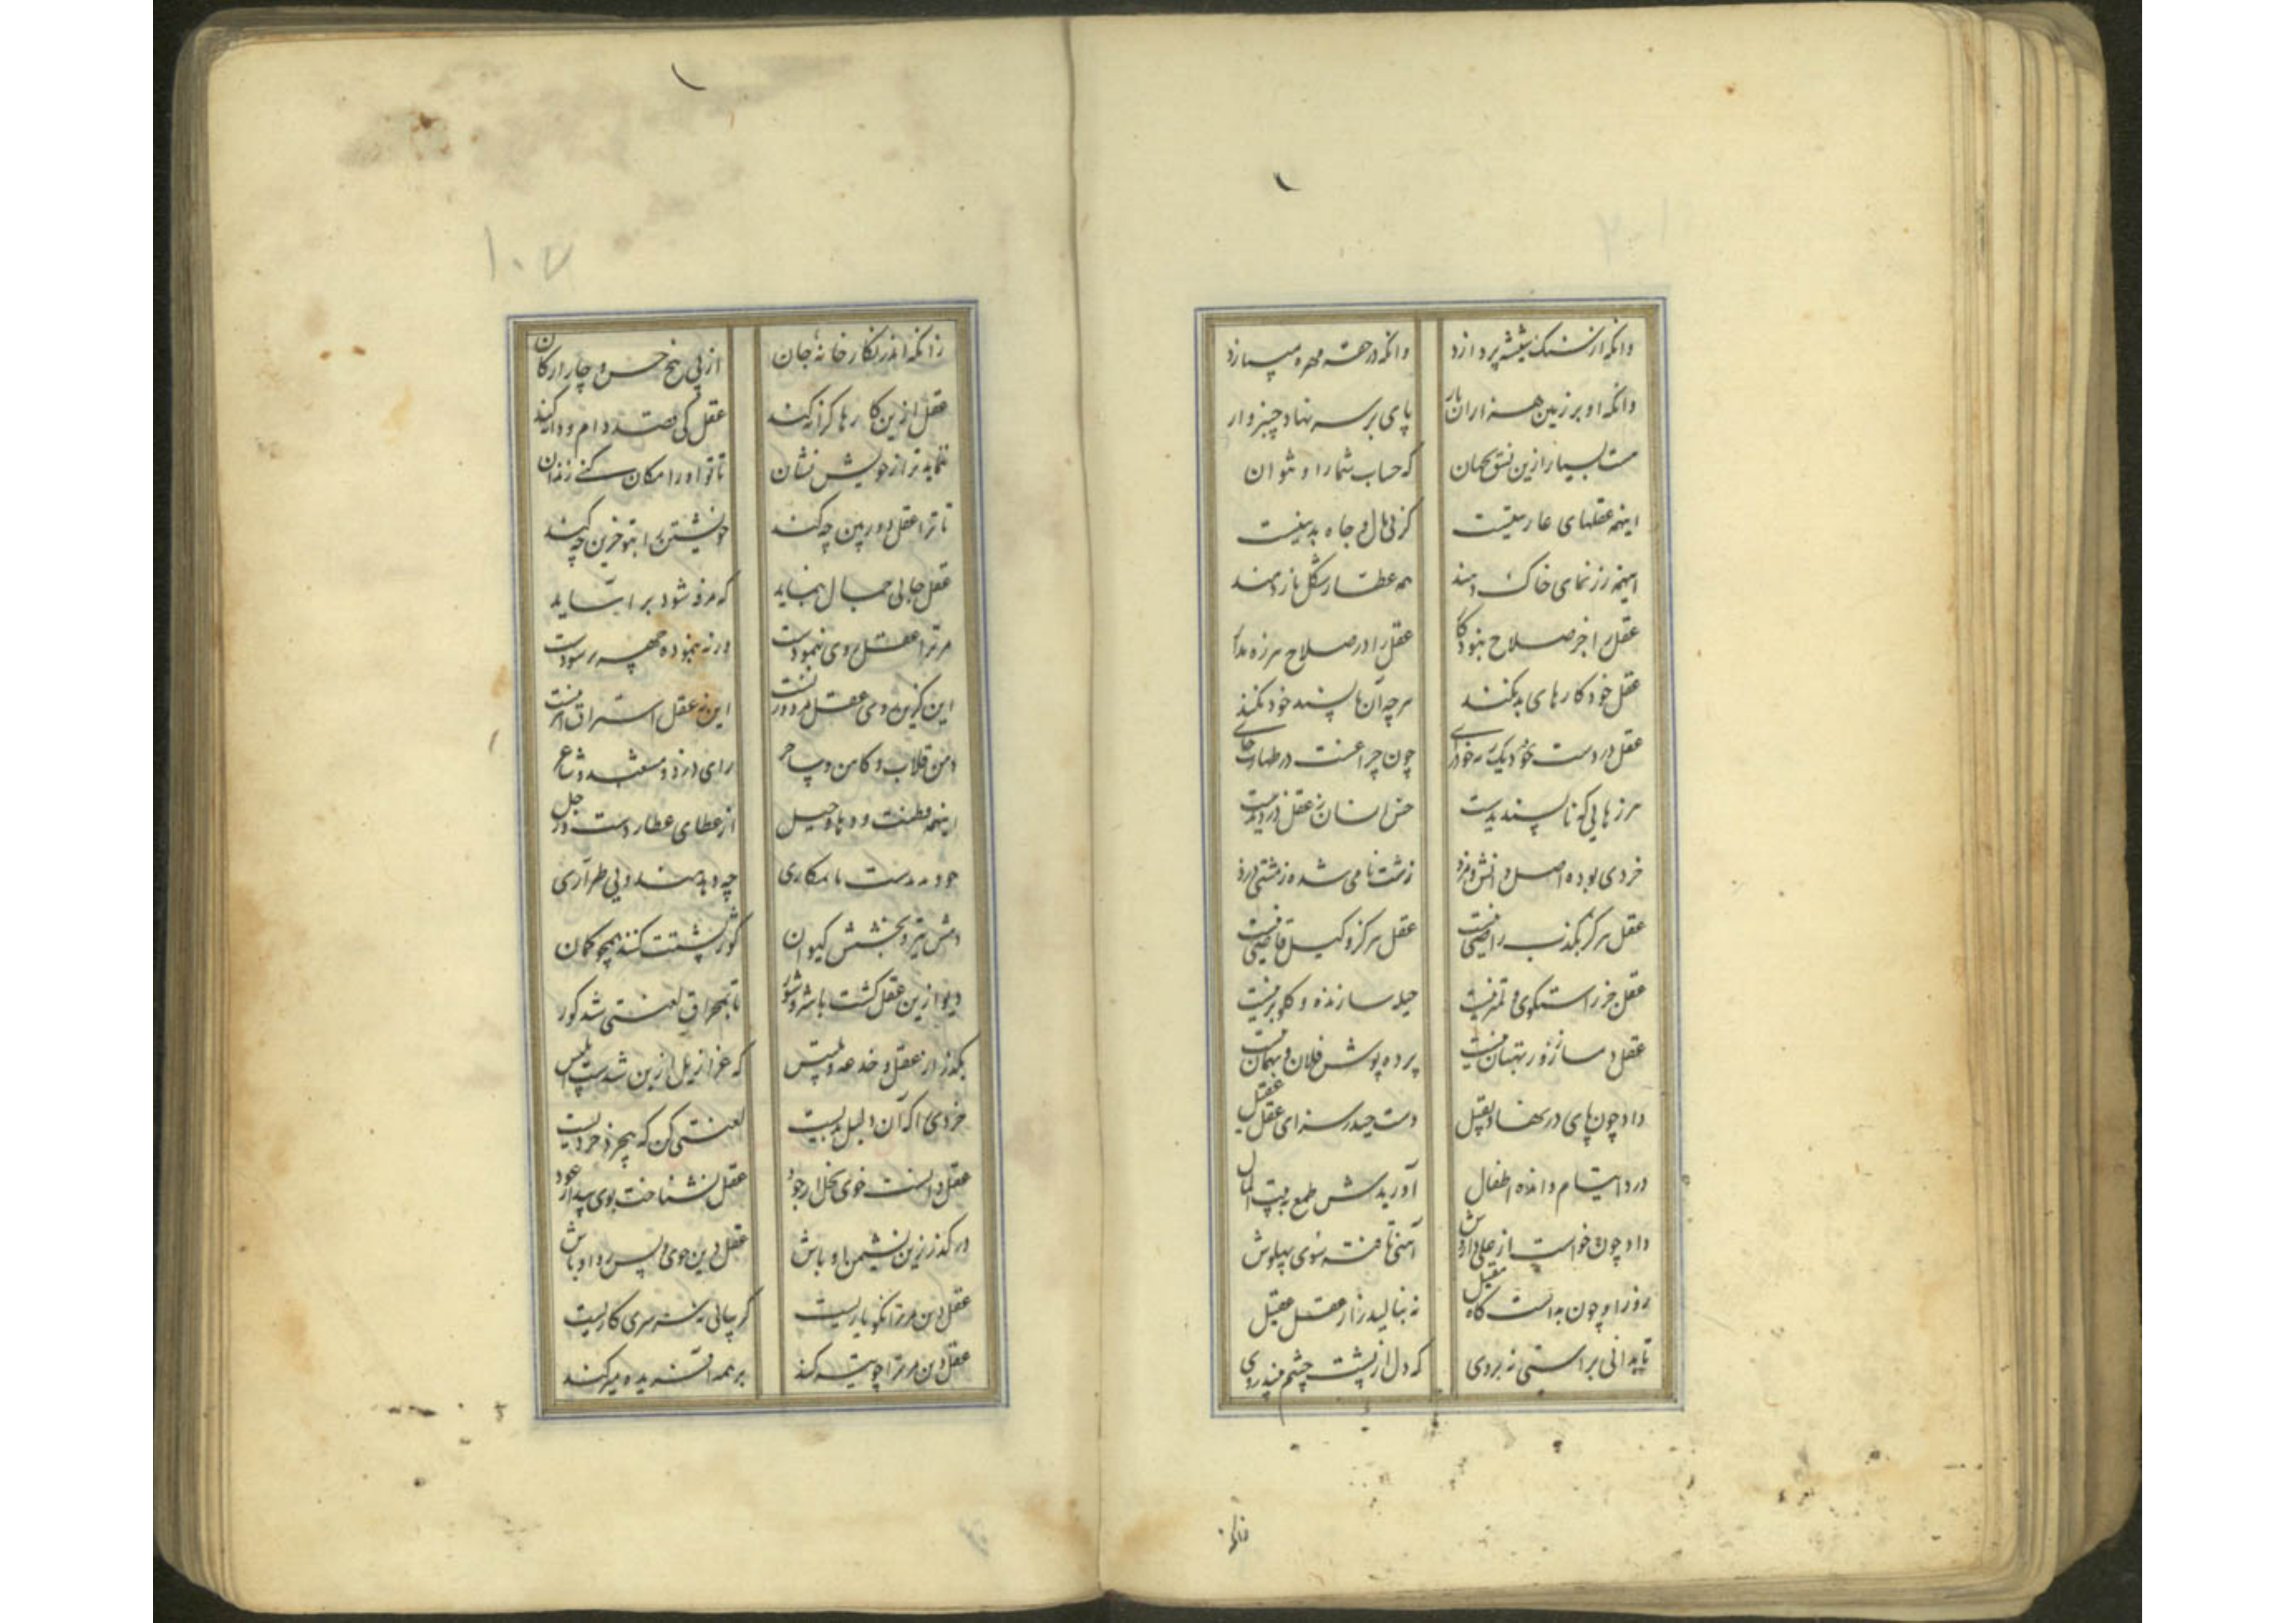 وانکه از سنک شیشه پردازد وانکه در حقه مهره میبازد
وانکه او بر زمین هزاران بار پای بر سر نهاد چنبروار
هست بسیار ازین نسق بجهان که حساب شمار او نتوان
اینهمه عقلهای عاریتیست کز پی مال و جاه بدنیتست
اینهمه رزنمای خاک دهند همه عطار شکل باز دهند
عقل را جز صلاح نبود کار عقل را در صلاح هرزه مدار
عقل خود کارهای بد نکند هرچه آن ناپسند خود نکند
عقل در دست خود یک رمه خودرای چون چراغست در طهارت جای
هرزهایی که ناپسندیدست حس انسان ز عقل دزدیدست
خردی بوده اصل دانش و مزد زشت نامی شده ز مشتی دزد
عقل هرگز بکذب راضی نیست عقل هرگز وکیل قاضی نیست
عقل جز راستکوی و نیست حیله سازنده و کلوبر نیست
عقل دمساز زور و بهتان نیست پرده پوش فلان و بهمان نیست
داد چون پای در نهاد بقیل دست حیدر سزای عقل عقیل
درد ایتام و انده اطفال آوریدش طمع به بیت المال
داد چون خواست از علی دادش آهنی تافته سوی پهلوش
روز را و چون بدانست کاه مقیل نه بنالید زار عقل عقیل
تا بدانی براستی نه بروی که دل از پشت چشم بیند روی
زانکه
۱۰۷
زانکه اندر نکارخانه جان از پی پنج حس و چار ارکان
عقل ازین کارها کرانه کند عقل کی قصد دام و دانه کند
ننماید ترا ز خویش نشان تا تو او را مکان کنی زندان
تا ترا عقل دوربین چه کند خویشتن را بتو خرین چه کند
عقل جالی جمال ننماید که مزور شود برا نتاید
مر ترا عقل روی ننمودست ورنه ننموده چهره سودست
این کزین روی عقل مردود نیست این نه عقل استراق نیست
دمن قلاب و کاهن و ساحر رای دزد و مشعبد و شاعر
اینهمه فطنت و دها و حیل از عطای عطاردست و زحل
خود ندیدست با مکاری چه دهند و بی طراری
دهش تیر و بخشش کیوان کوژ پشتت کنند همچو کمان
دیو ازین عقل کشت با شر و شور تا بمخراق لعنتی شد کور
بکذر از عقل و خدعه و تلبیس که عزازیل ازین شدست ابلیس
خردی را که آن دلیل بدیست لعنتی کن که بیخرد خردیست
عقل دانست خوی بخل از جود عقل نشناخت بوی بید از عود
در کذر زین نشیمن اوباش عقل دین جوی و پس رو او باش
عقل دین مر ترا نکو یاریست کر بیابی نه سرسری کاریست
عقل دین مر ترا چو تیر کند بر همه آفریده میر کند